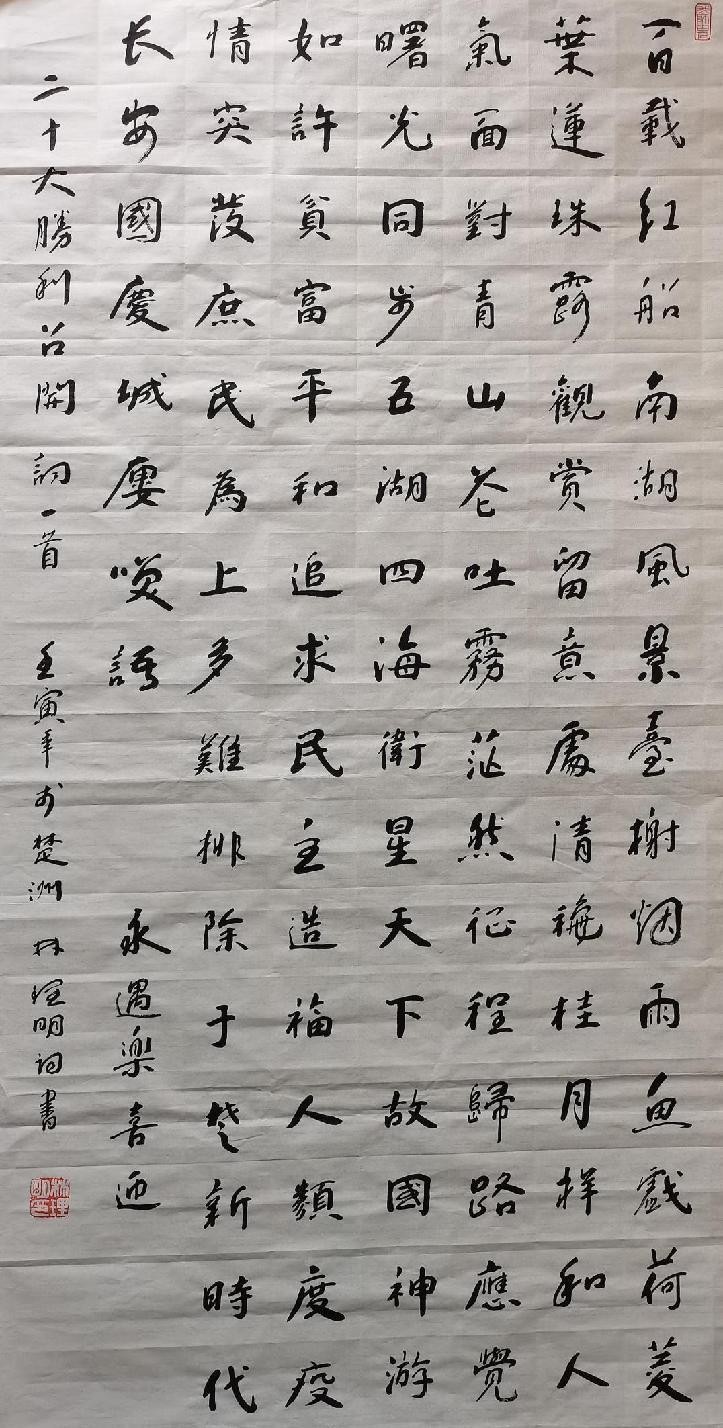 百載红船南湖風景臺榭烟雨魚戲荷菱
葉蓮珠露觀賞留意處清穐桂月祥和人
氣面對青山谷吐霧茫然征程歸路應覺
曙光同步五湖四海衛星天下故國神游
如許貧富平和追求民主造福人類度疫
情突發庶民為上多難排除于新時代
长安國慶城慶語 永遇樂喜迎
二十大勝利召開 詞一首 壬寅年於楚洲 林理明词書
林理